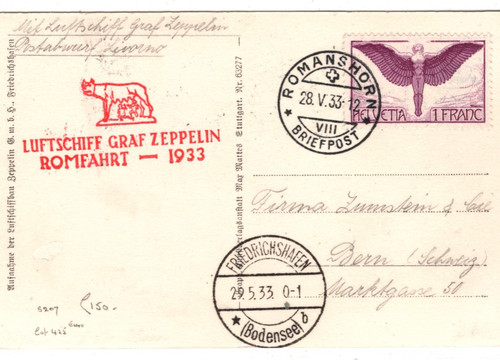 Mit Luftschiff Graf Zeppelin
Postabwurf Livorno
LUFTSCHIFF GRAF ZEPPELIN
ROMFAHRT — 1933
Aufnahme der Luftschiffbau Zeppelin G. m. b. H., Friedrichshafen
Verlagsanstalt Max Mattes Stuttgart. Nr. 63277
ROMANSHORN
28. V. 33-12
VIII
BRIEFPOST
HELVETIA 1 FRANC
Firma Zumstein & Cie
Bern (Schweiz)
Marktgasse 50
FRIEDRICHSHAFEN
29.5.33. 0-1
(Bodensee) b
150.-